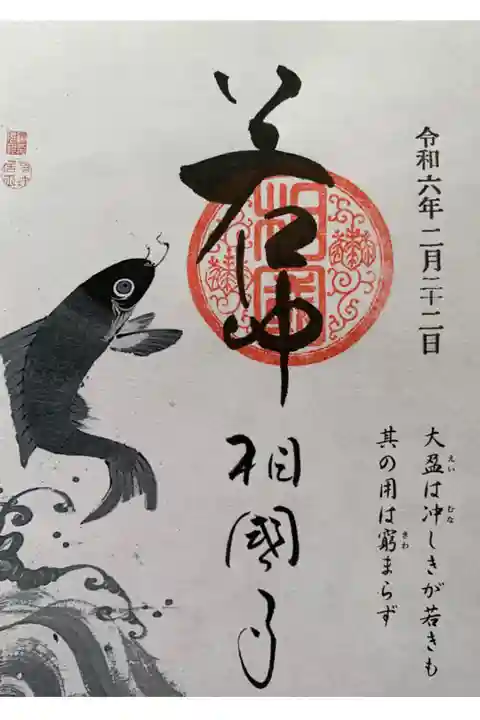 令和六年 二月二十二日
大盈は冲しきが若きも
えい
むな
其の用は窮まらず
きわ
若冲
相國
相國寺